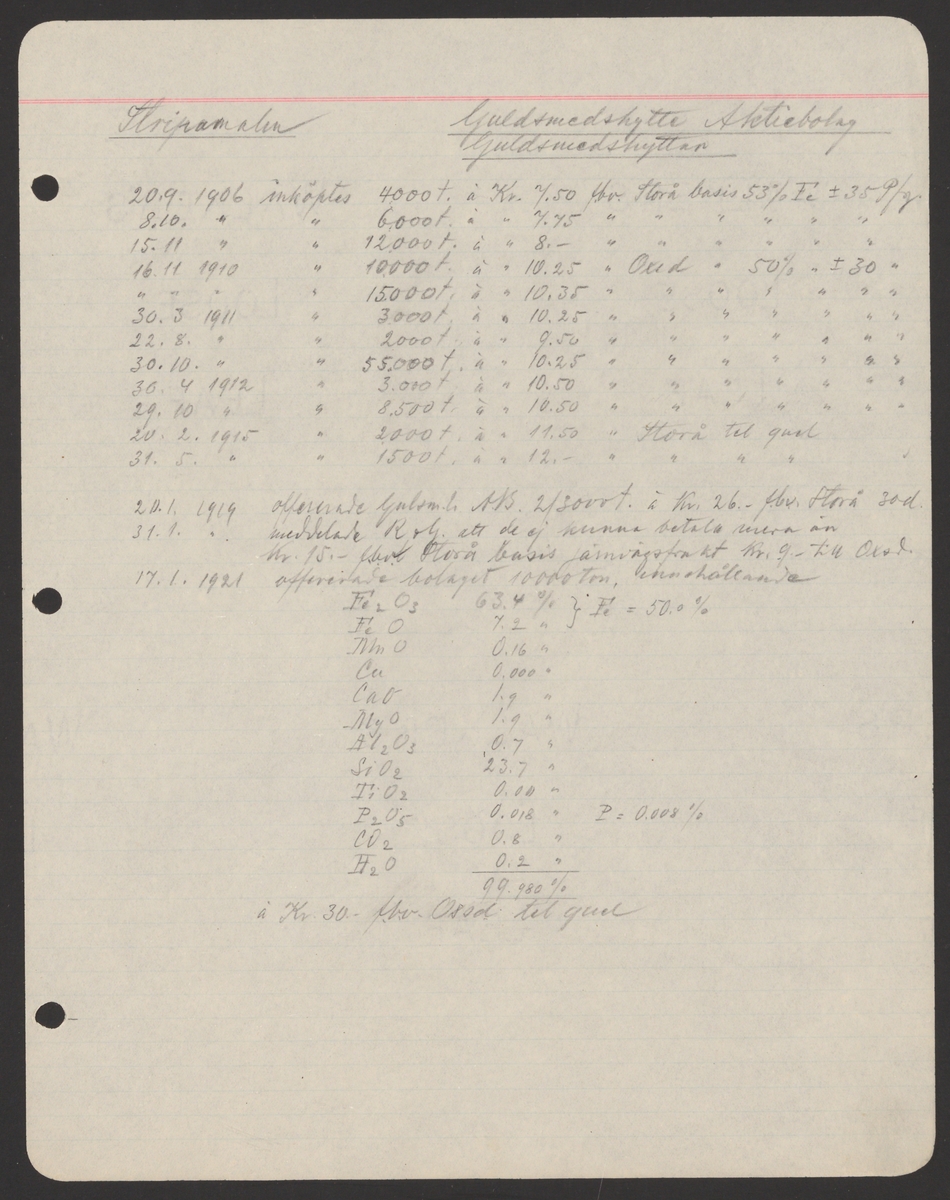 Stripamalm Guldsmedshytte Aktiebolag
Guldsmedshyttan
20.9. 1906 inköptes 4000 t. à Kr. 7.50 fbv. Storå basis 53% Fe ± 35 P/g.
8.10. " " 6000 t. à " 7.75 " " " " " "
15.11 " " 12000 t. à " 8.- " " " " " "
16.11 1910 " 10000 t. à " 10.25 " Oxsd " 50% " ± 30 "
" " " " 15000 t. à " 10.35 " " " " " " "
30.3 1911 " 3000 t. à " 10.25 " " " " " " "
22.8. " " 2000 t. à " 9.50 " " " " " " "
30.10. " " 55.000 t. à " 10.25 " " " " " " "
30.4 1912 " 3.000 t. à " 10.50 " " " " " " "
29.10 " " 8.500 t. à " 10.50 " " " " " " "
20.2. 1915 " 2000 t. à " 11.50 " Storå tel quel
31.5. " " 1500 t. à " 12.- " " " "
20.1. 1919 offererade Gulsmh. AB. 2/3000 t. à Kr. 26.- fbv. Storå 30d.
31.1. " meddelade att de ej kunna betala mera än
Kr. 15.- fbv Storå basis järnvägsfrakt Kr. 9.- till Oxsd.
17.1. 1921 offererade bolaget 10000 ton, innehållande
Fe2O3 63.4 % } Fe = 50.0 %
FeO 7.2 "
MnO 0.16 "
Cu 0.000 "
CaO 1.9 "
MgO 1.9 "
Al2O3 0.7 "
SiO2 23.7 "
TiO2 0.00 "
P2O5 0.018 " P = 0.008 %
CO2 0.8 "
H2O 0.2 "
99.980 %
à Kr. 30.- fbv. Oxsd. tel quel